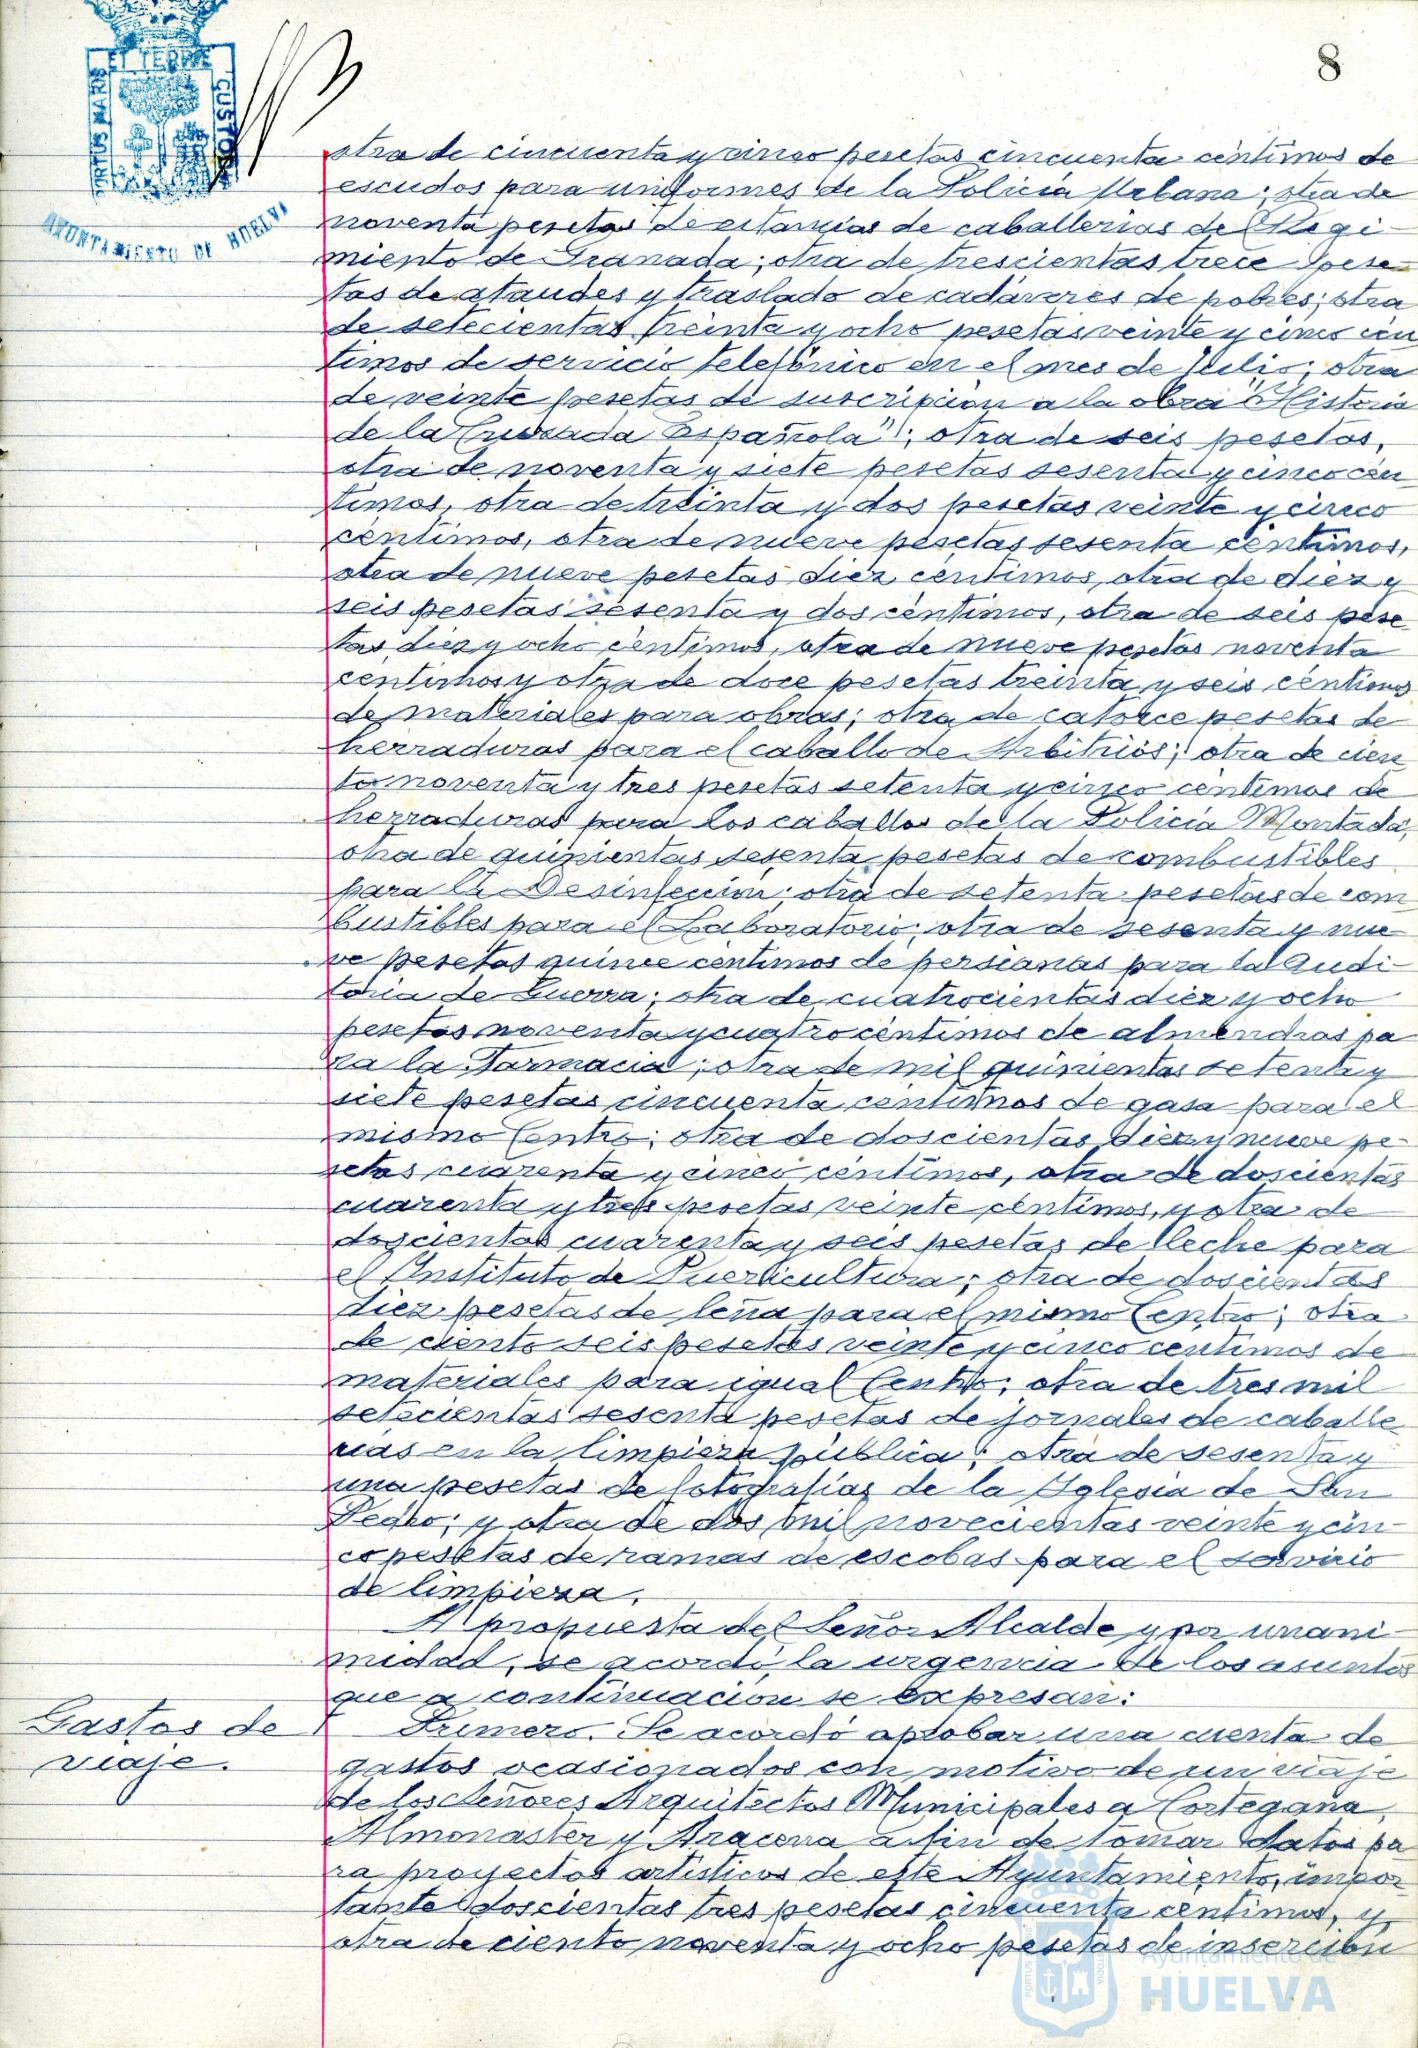 8
PORTUS MARIS ET TERRE CUSTODIA
AYUNTAMIENTO DE HUELVA
otra de cincuenta y cinco pesetas cincuenta centimos de
escudos para uniformes de la Policía Urbana; otra de
noventa pesetas de estancias de caballerias del Regi-
miento de Granada; otra de trescientas trece pese-
tas de ataudes y traslado de cadáveres de pobres; otra
de setecientas treinta y ocho pesetas veinte y cinco cén
timos de servicio telefónico en el mes de Julio; otra
de veinte pesetas de suscripción a la obra "Historia
de la Cruzada Española"; otra de seis pesetas,
otra de noventa y siete pesetas sesenta y cinco cén
timos, otra de treinta y dos pesetas veinte y cinco
céntimos, otra de nueve pesetas sesenta centimos,
otra de nueve pesetas diez centimos, otra de diez y
seis pesetas sesenta y dos céntimos, otra de seis pese
tas diez y ocho céntimos, otra de nueve pesetas noventa
centimos y otra de doce pesetas treinta y seis céntimos
de materiales para obras; otra de catorce pesetas de
herraduras para el caballo de Arbitrios; otra de cien
to noventa y tres pesetas setenta y cinco centimos de
herraduras para los caballos de la Policía Montada;
otra de quinientas sesenta pesetas de combustibles
para la Desinfección; otra de setenta pesetas de com
bustibles para el Laboratorio; otra de sesenta y nue
ve pesetas quince centimos de persianas para la Audi-
toria de Guerra; otra de cuatrocientas diez y ocho
pesetas noventa y cuatro céntimos de almendras pa
ra la Farmacia; otra de mil quinientas setenta y
siete pesetas cincuenta centimos de gasa para el
mismo Centro; otra de doscientas diez y nueve pe-
setas cuarenta y cinco céntimos, otra de doscientas
cuarenta y tres pesetas veinte céntimos, y otra de
doscientas cuarenta y seis pesetas de leche para
el Instituto de Puericultura; otra de doscientas
diez pesetas de leña para el mismo Centro; otra
de ciento seis pesetas veinte y cinco centimos de
materiales para igual Centro; otra de tres mil
setecientas sesenta pesetas de jornales de caballe
rias en la limpieza pública; otra de sesenta y
una pesetas de fotografías de la Iglesia de San
Pedro; y otra de dos mil novecientas veinte y cin-
co pesetas de ramas de escobas para el servicio
de limpieza.
A propuesta del Señor Alcalde y por unani-
midad, se acordó la urgencia de los asuntos
que a continuación se expresan:
Gastos de
viaje.
Primero. Se acordó aprobar una cuenta de
gastos ocasionados con motivo de un viaje
de los Señores Arquitectos Municipales a Cortegana,
Almonaster y Aracena a fin de tomar datos pa
ra proyectos artísticos de este Ayuntamiento, impor
tante doscientas tres pesetas cincuenta centimos, y
otra de ciento noventa y ocho pesetas de inserción
Ayuntamiento de
HUELVA